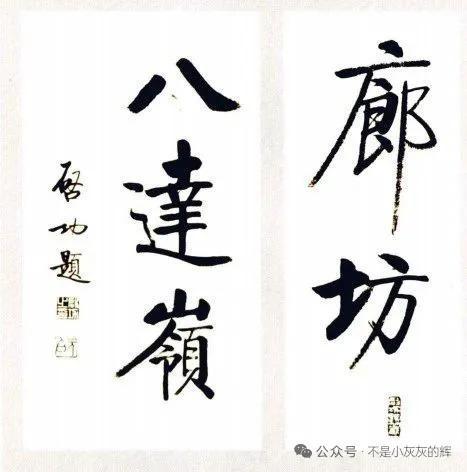 廊坊
八達嶺
啓功題
公众号 · 不是小灰灰的辉